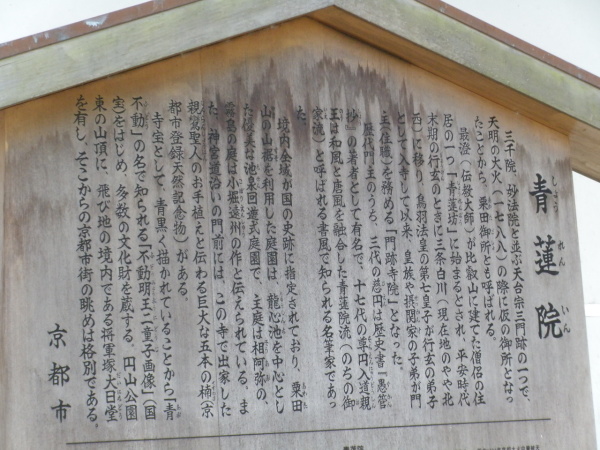 青蓮院
しょうれんいん
三千院、妙法院と並ぶ天台宗三門跡の一つで、
天明の大火(一七八八)の際に仮の御所となっ
たことから、粟田御所とも呼ばれる。
最澄(伝教大師)が比叡山に建てた僧侶の住
居の一つ「青蓮坊」に始まるとされ、平安時代
末期の行玄のときに三条白川(現在地のやや北
西)に移り、鳥羽法皇の第七皇子が行玄の弟子
として入寺して以来、皇族や摂関家の子弟が門
主(住職)を務める「門跡寺院」となった。
歴代門主のうち、三代の慈円は歴史書『愚管
抄』の著者として有名で、十七代の尊円入道親
王は和風と唐風を融合した青蓮院流(のちの御
家流)と呼ばれる書風で知られる名筆家であっ
た。
境内全域が国の史跡に指定されており、粟田
山の山裾を利用した庭園は、龍心池を中心とし
た優美な池泉回遊式庭園で、主庭は相阿弥の、
霧島の庭は小堀遠州の作と伝えられている。ま
た、神宮道沿いの門前には、この寺で出家した
親鸞聖人のお手植えと伝わる巨大な五本の楠(京
都市登録天然記念物)がある。
寺宝として、青黒く描かれていることから「青
不動」の名で知られる「不動明王二童子画像」(国
宝)をはじめ、多数の文化財を蔵する。円山公園
東の山頂に、飛び地の境内である将軍塚大日堂
を有し、そこからの京都市街の眺めは格別である。
京都市